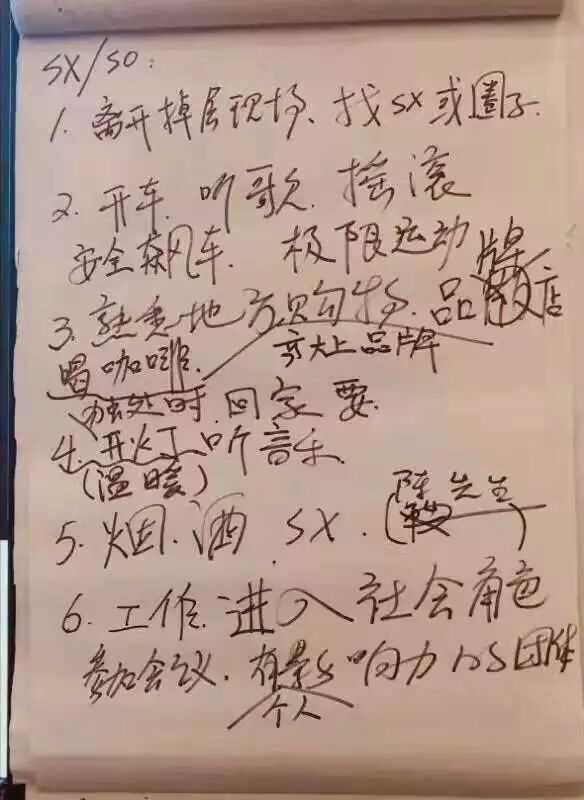 SX/SO:
1. 离开掉层现场、找SX或圈子.
2. 开车. 听歌. 摇滚
安全飙风车. 极限运动
3. 熟悉地方购物. 品牌店
喝咖啡. 高大上品牌
独处时. 回家要
4. 开灯 听音乐.
(温暖)
5. 烟. 酒. SX. (陈先生)
6. 工作. 进入社会角色
参加会议. 有影响力的团体
个人